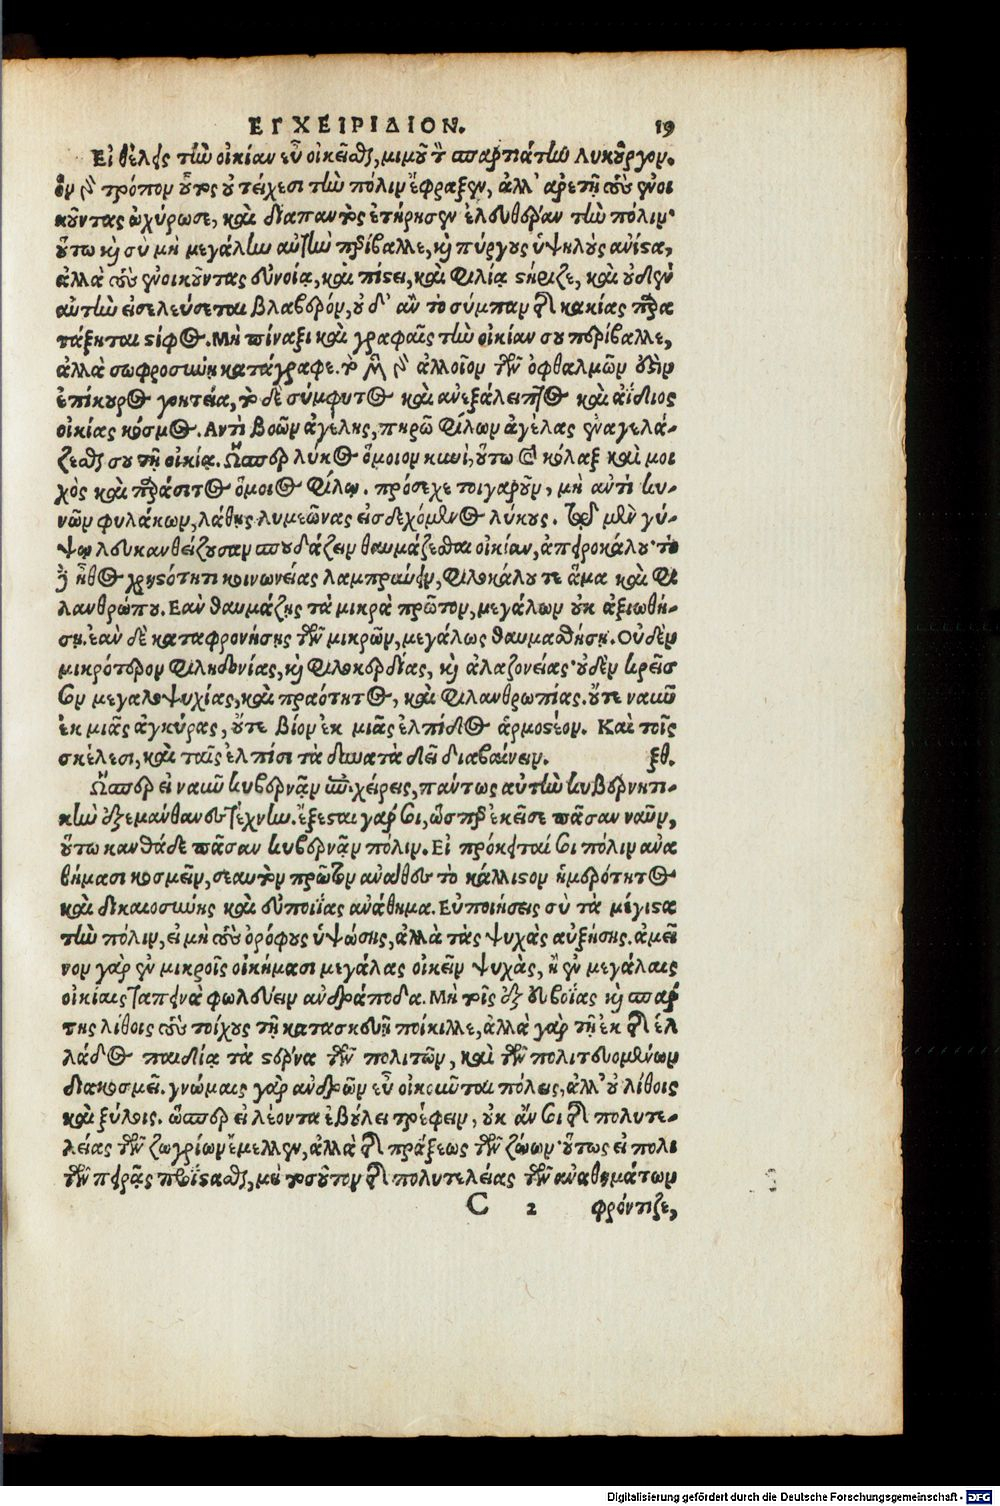 ΕΓΧΕΙΡΙΔΙΟΝ. 19
Εἰ θέλεις τὴν οἰκίαν εὖ οἰκεῖσθαι, μιμοῦ τὸν σπαρτιάτην Λυκοῦργον.
ὃν γὰρ τρόπον οὗτος οὐ τείχεσι τὴν πόλιν ἔφραξεν, ἀλλ' ἀρετῇ τοὺς ἐνοι
κοῦντας ὠχύρωσε, καὶ διαπαντὸς ἐτήρησεν ἐλευθέραν τὴν πόλιν·
οὕτω καὶ σὺ μὴ μεγάλην αὐλὴν περίβαλλε, καὶ πύργους ὑψηλοὺς ἀνίστα,
ἀλλὰ τοὺς ἐνοικοῦντας εὐνοίᾳ, καὶ πίστει, καὶ φιλίᾳ στήριζε, καὶ οὐδὲν
αὐτὴν εἰσελεύσεται βλαβερόν, οὐδ' ἂν τὸ σύμπαν τῆς κακίας παρα
τάξηται στίφος. Μὴ πίναξι καὶ γραφαῖς τὴν οἰκίαν σου περίβαλλε,
ἀλλὰ σωφροσύνῃ κατάγραφε. τὸ μὲν γὰρ ἀλλοῖον τῶν ὀφθαλμῶν ἐστιν
ἐπίκουρος γοητεία, τὸ δὲ σύμφυτος καὶ ἀνεξάλειπτος καὶ ἀΐδιος
οἰκίας κόσμος. Αντὶ βοῶν ἀγέλης, πειρῶ φίλων ἀγέλας ἐναγελά-
ζεσθαι σου τῇ οἰκίᾳ. Ὥσπερ λύκος ὅμοιον κυνὶ, οὕτω καὶ κόλαξ καὶ μοι
χὸς καὶ παράσιτος ὅμοιος φίλῳ. πρόσεχε τοιγαροῦν, μὴ ἀντὶ κυ-
νῶν φυλάκων, λάθῃς λυμεῶνας εἰσδεχόμενος λύκους. Τὸ μὲν γύ-
ψῳ λευκανθείζουσαν σπουδάζειν θαυμάζεσθαι οἰκίαν, ἀπειροκάλου· τὸ
δὲ ἦθος χρηστότητι κοινωνείας λαμπραύνειν, φιλοκάλου τε ἅμα καὶ φι
λανθρώπου. Εαν θαυμάζῃς τὰ μικρὰ πρῶτον, μεγάλων οὐκ ἀξιωθή-
σῃ. ἐὰν δὲ καταφρονήσῃς τῶν μικρῶν, μεγάλως θαυμασθήσῃ. Οὐδὲν
μικρότερον φιληδονίας, καὶ φιλοκερδίας, καὶ ἀλαζονείας· οὐδὲν κρεῖσ
σον μεγαλοψυχίας, καὶ πραότητος, καὶ φιλανθρωπίας. οὔτε ναῦν
ἐκ μιᾶς ἀγκύρας, οὔτε βίον ἐκ μιᾶς ἐλπίδος ἁρμοστέον. Καὶ τοῖς
σκέλεσι, καὶ ταῖς ἐλπίσι τὰ δυνατὰ δεῖ διαβαίνειν. ξθ.
Ὥσπερ εἰ ναῦν κυβερνᾷν ὑπεχείρεις, πάντως αὐτὴν κυβερνητι-
κὴν ἐξεμάνθανες τέχνην. ἔξεσται γάρ σοι, ὥσπερ ἐκεῖσε πᾶσαν ναῦν,
οὕτω κανθάδε πᾶσαν κυβερνᾷν πόλιν. Εἰ πρόκειταί σοι πόλιν ἀνα
θήμασι κοσμεῖν, σεαυτὸν πρῶτον ἀνάθευ τὸ κάλλιστον ἡμερότητος
καὶ δικαιοσύνης καὶ εὐποιΐας ἀνάθημα. Εὐποιήσεις σὺ τὰ μέγιστα
τὴν πόλιν, εἰ μὴ τοὺς ὀρόφους ὑψώσῃς, ἀλλὰ τὰς ψυχὰς αὐξήσῃς. ἀμεῖ
νον γὰρ ἐν μικροῖς οἰκήμασι μεγάλας οἰκεῖν ψυχὰς, ἢ ἐν μεγάλαις
οἰκίαις ταπεινὰ φωλεύειν ἀνδράποδα. Μὴ τοῖς ἐξ εὐβοίας καὶ σπάρ
της λίθοις τοὺς τοίχους τῇ κατασκευῇ ποίκιλλε, ἀλλὰ γὰρ τῇ ἐκ τῆς ἑλ
λάδος παιδίᾳ τὰ στέρνα τῶν πολιτῶν, καὶ τῶν πολιτευομένων
διακοσμεῖ. γνώμαις γὰρ ἀνδρῶν εὖ οἰκοῦνται πόλεις, ἀλλ' οὐ λίθοις
καὶ ξύλοις. ὥσπερ εἰ λέοντα ἐβούλει τρέφειν, οὐκ ἄν σοι τῆς πολυτε-
λείας τῶν ζωγρίων ἔμελλεν, ἀλλὰ τῆς πράξεως τῶν ζώων· οὕτως εἰ πολι
τῶν πειρᾷς προΐστασθαι, μὴ τοσοῦτον τῆς πολυτελείας τῶν ἀναθημάτων
C 2 φρόντιζε,
Digitalisierung gefördert durch die Deutsche Forschungsgemeinschaft - DFG